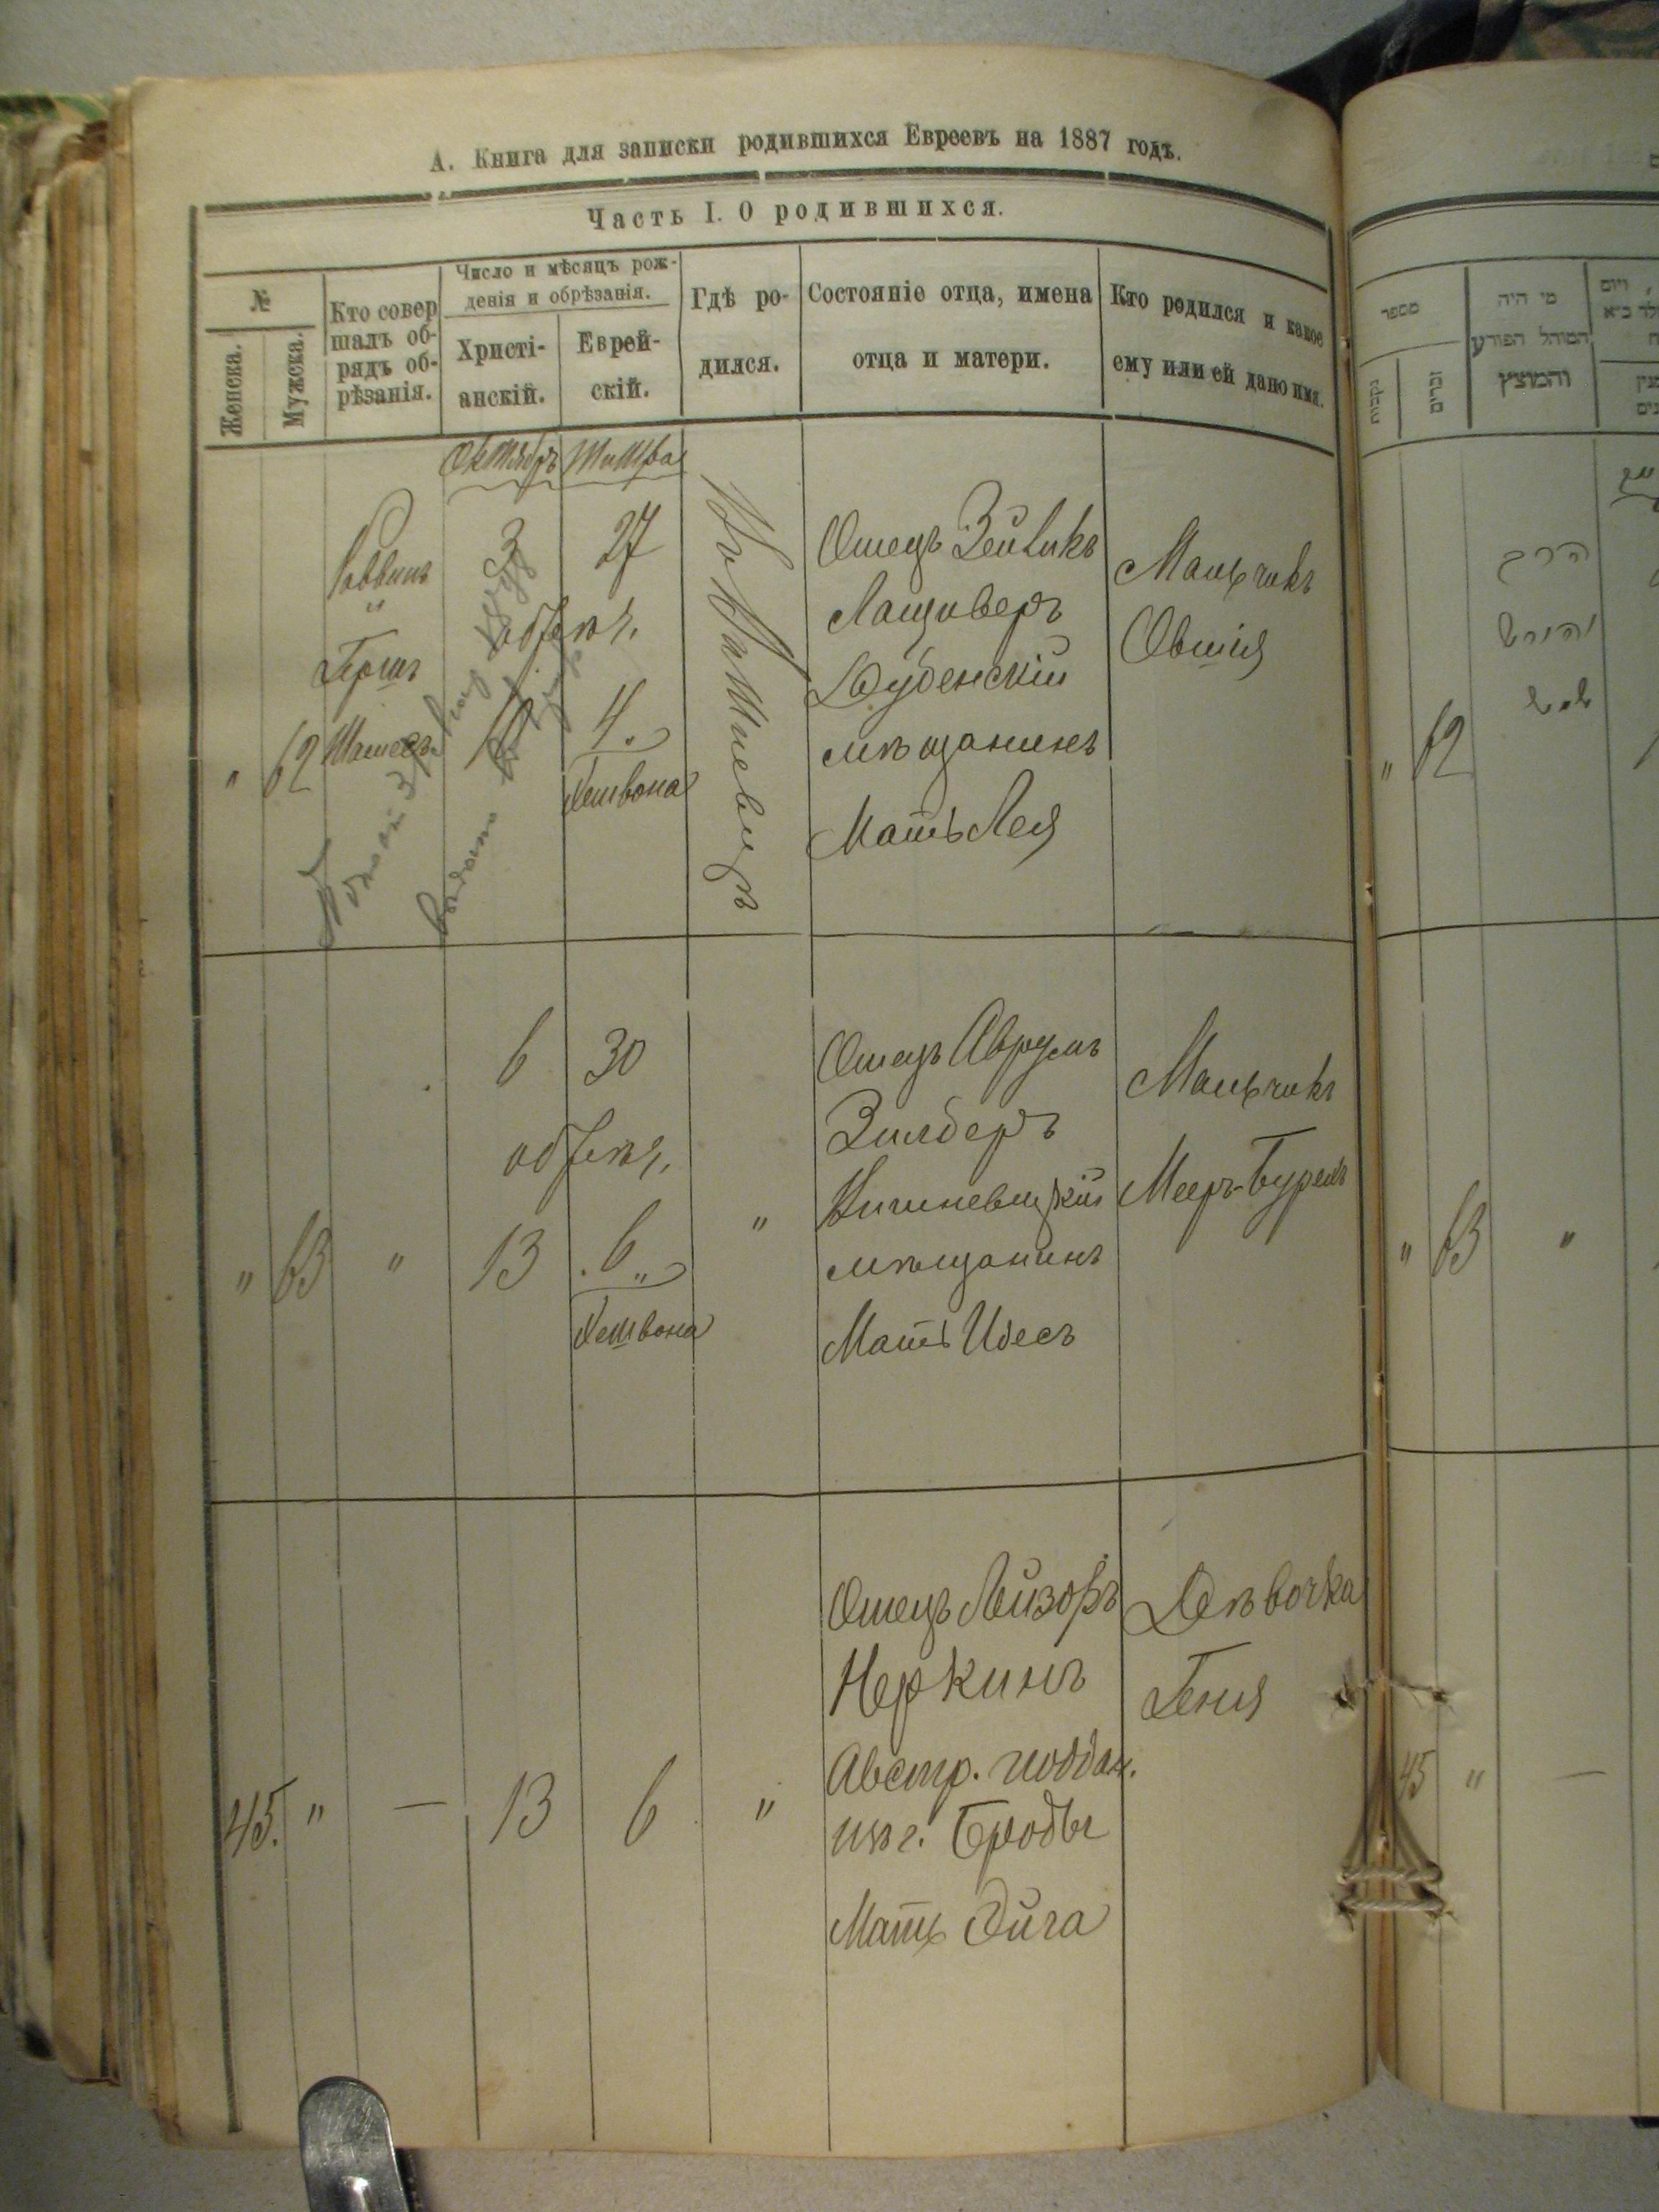 А. Книга для записки родившихся Евреевъ на 1887 годъ.
Часть I. О родившихся.
№
Женска.
Мужска.
Кто совер
шалъ об-
рядъ об-
рѣзанія.
Число и мѣсяцъ рож-
денія и обрѣзанія.
Христі-
анскій.
Еврей-
скій.
Гдѣ ро-
дился.
Состояніе отца, имена
отца и матери.
Кто родился и какое
ему или ей дано имя.
Октябрь Тишра
" 62
Раввинъ
"
Гершъ
3 27
обрѣз.
10 4.
Хешвона
Отецъ Зейликъ
Лащиверъ
Дубенскій
мѣщанинъ
Мать Лея
Мальчикъ
Овшія
" 63 "
6 30
обрѣз.
13 6 "
Хешвона
"
Отецъ Аврумъ
Зилберъ
Вишневецкій
мѣщанинъ
Мать Идесъ
Мальчикъ
Мееръ-Бурехъ
45. " — 13 6 "
Отецъ Лейзоръ
Неркинъ
Австр. поддан.
изъ г. Броды
Мать Эйга
Дѣвочка
Геня
מספר
נקבות
זכרים
מי היה
המוהל הפורע
והמוצץ
" 62
" 63 "
45 " —